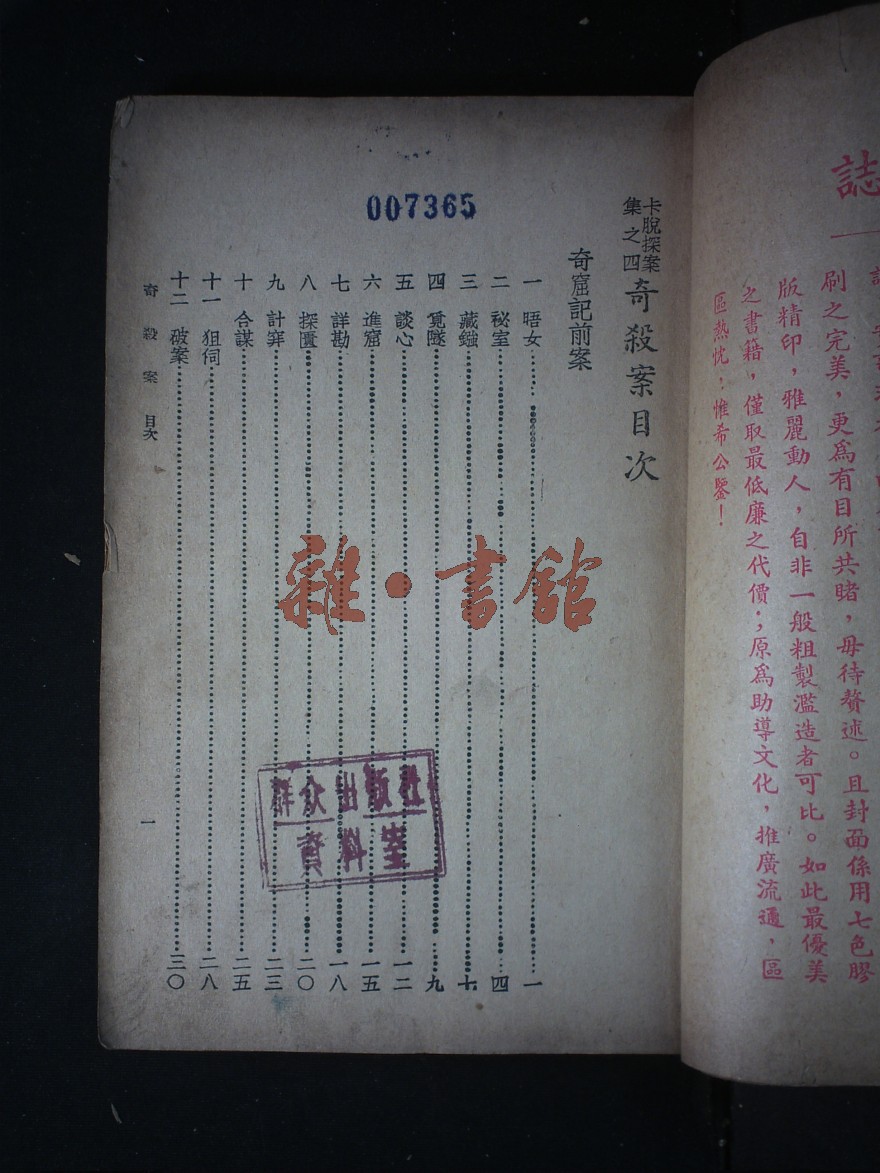 誌
刷之完美，更爲有目所共睹，毋待贅述。且封面係用七色膠
版精印，雅麗動人，自非一般粗製濫造者可比。如此最優美
之書籍，僅取最低廉之代價；原爲助導文化，推廣流通，區
區熱忱；惟希公鑒！
卡脫探案
集之四
奇殺案目次
奇窟記前案
一 晤女 一
二 秘室 四
三 藏鏹 七
四 覓隧 九
五 談心 一二
六 進窟 一五
七 詳勘 一八
八 探匱 二〇
九 計穽 二三
十 合謀 二五
十一 狙伺 二八
十二 破案 三〇
奇殺案 目次
一
007365
雜·書館
資料室